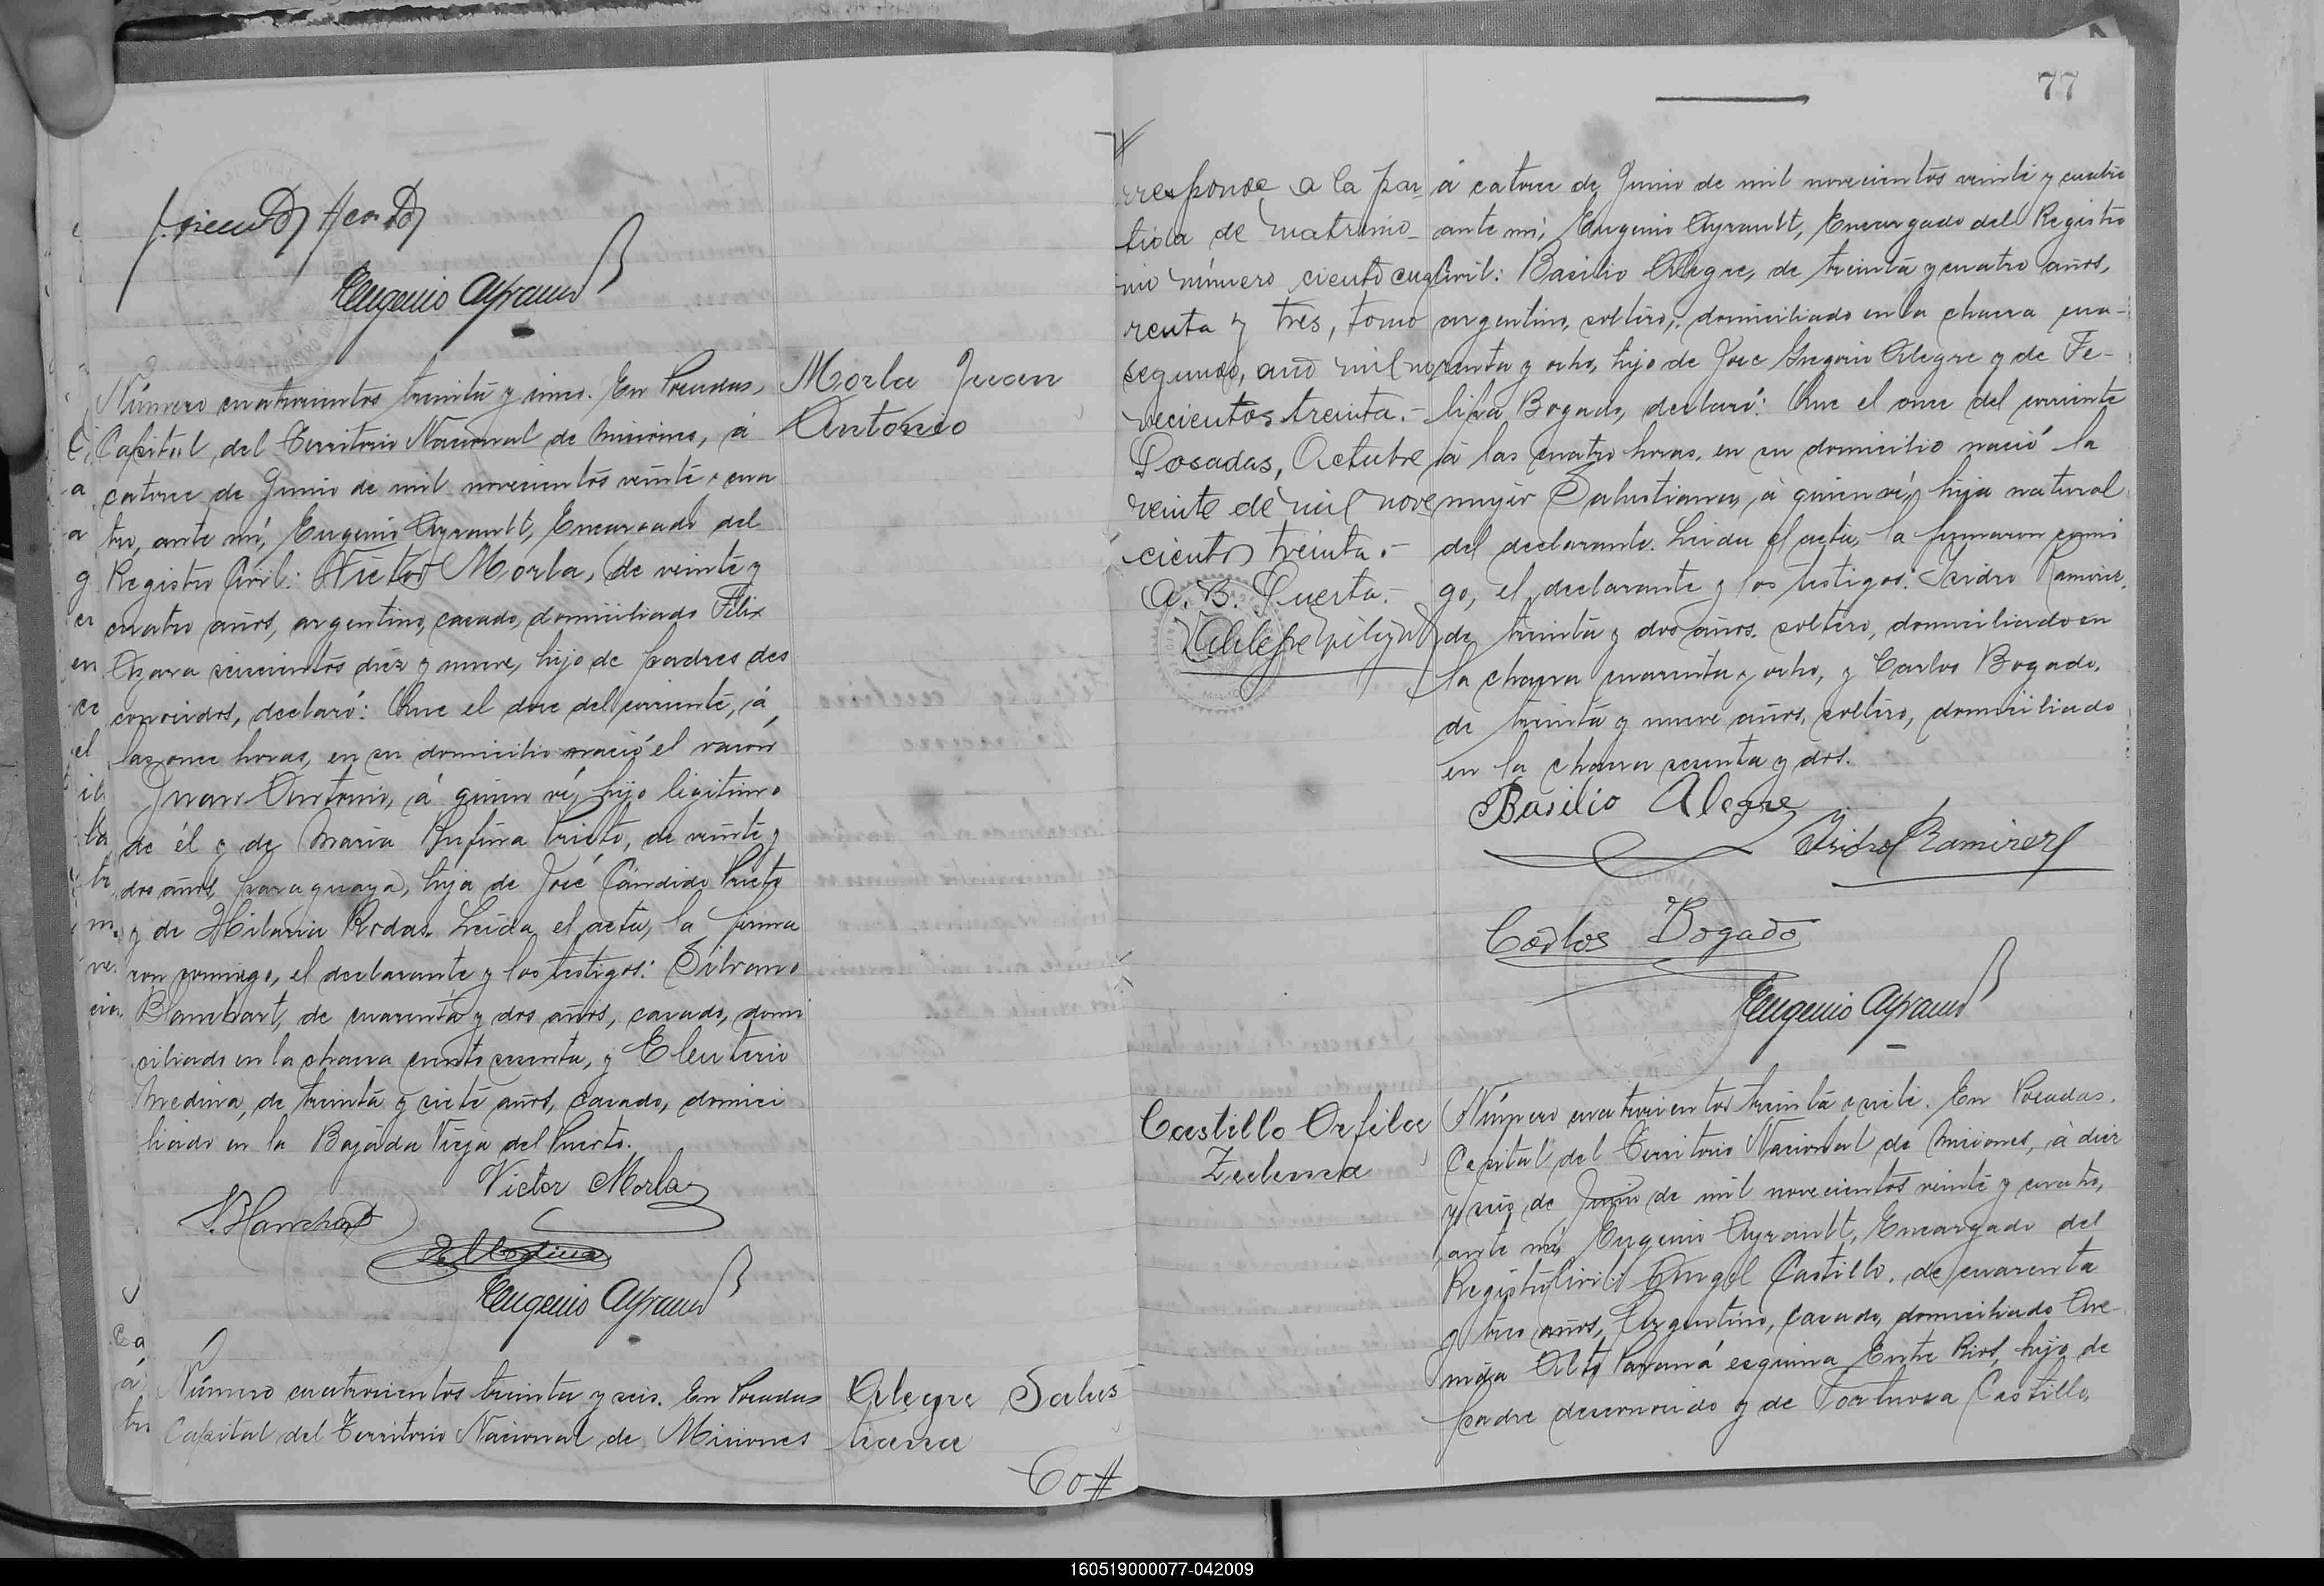 Eugenio Ayrault
Número cuatrocientos treinta y cinco. En Posadas,
Capital del Territorio Nacional de Misiones, á
catorce de Junio de mil novecientos veinte y cua
tro, ante mí, Eugenio Ayrault, Encargado del
Registro Civil: Victor Morla, de veinte y
cuatro años, argentino, casado, domiciliado Félix
Azara seiscientos diez y nueve, hijo de padres des
conocidos, declaró: Que el doce del corriente, á
las once horas, en su domicilio nació el varón
Juan Antonio, á quien ví, hijo legítimo
de él y de María Rufina Prieto, de veinte y
dos años, paraguaya, hija de José Cándido Prieto
y de Hilaria Rodas. Leida el acta, la firma
ron conmigo, el declarante y los testigos: Silvano
Blanchart, de cuarenta y dos años, casado, domi
ciliado en la chacra ciento sesenta, y Eleuterio
Medina, de treinta y siete años, casado, domici
liado en la Bajada Vieja del Puerto.
Victor Morla
S. Blanchart
E. Medina
Eugenio Ayrault
Morla Juan
Antonio
Número cuatrocientos treinta y seis. En Posadas
Capital del Territorio Nacional de Misiones
Alegre Salus
tiana
Co #
77
#
rresponde a la par
tida de matrimo-
nio número ciento cua
renta y tres, tomo
segundo, año mil no
vecientos treinta.-
Posadas, Octubre
veinte de mil nove
cientos treinta.-
A. B. Puerta.-
á catorce de Junio de mil novecientos veinte y cuatro
ante mí, Eugenio Ayrault, Encargado del Registro
Civil: Basilio Alegre, de treinta y cuatro años,
argentino, soltero, domiciliado en la chacra cua-
renta y ocho, hijo de José Gregorio Alegre y de Fe-
lipa Bogado, declaró: Que el once del corriente
á las cuatro horas, en su domicilio nació la
mujer Salustiana, á quien ví, hija natural
del declarante. Leida el acta, la firmaron conmi
go, el declarante y los testigos: Isidro Ramirez,
de treinta y dos años, soltero, domiciliado en
la chacra cuarenta y ocho, y Carlos Bogado,
de treinta y nueve años, soltero, domiciliado
en la chacra sesenta y dos.
Basilio Alegre
Isidro Ramirez
Carlos Bogado
Eugenio Ayrault
Castillo Orfila
Zulema
Número cuatrocientos treinta y siete. En Posadas,
Capital del Territorio Nacional de Misiones, á diez
y seis de Junio de mil novecientos veinte y cuatro,
ante mí, Eugenio Ayrault, Encargado del
Registro Civil: Angel Castillo, de cuarenta
y tres años, Argentino, casado, domiciliado Ave
nida Alto Paraná esquina Entre Rios, hijo de
padre desconocido y de Tortuosa Castillo,
160519000077-042009